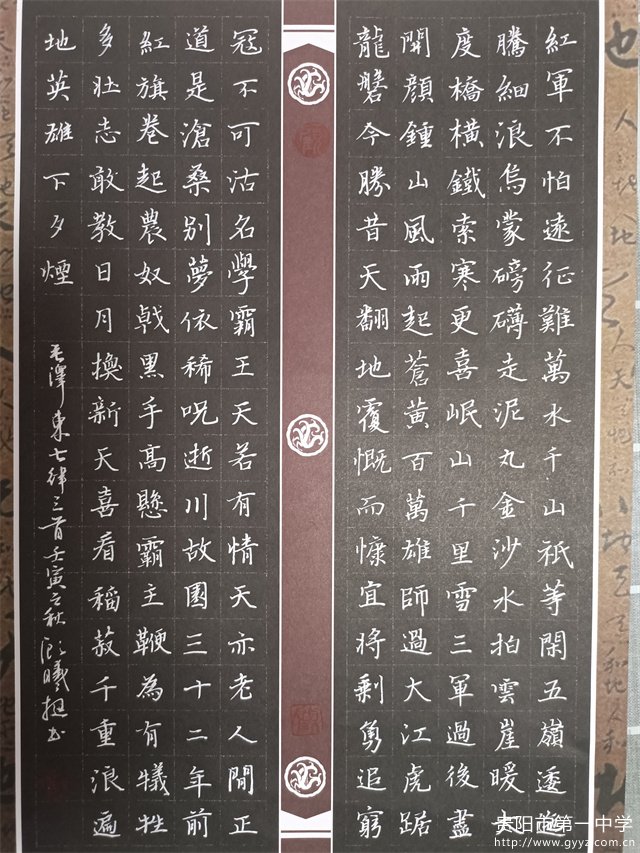 紅軍不怕遠征難萬水千山祇等閑五嶺逶迤
騰細浪烏蒙磅礴走泥丸金沙水拍雲崖暖大
度橋橫鐵索寒更喜岷山千里雪三軍過後盡
開顏鍾山風雨起蒼黃百萬雄師過大江虎踞
龍磐今勝昔天翻地覆慨而慷宜將剩勇追窮
冠不可沽名學霸王天若有情天亦老人間正
道是滄桑別夢依稀呪逝川故園三十二年前
紅旗卷起農奴戟黑手高懸霸主鞭為有犧牲
多壯志敢教日月換新天喜看稻菽千重浪遍
地英雄下夕煙
毛澤東七律三首壬寅立秋
贵阳市第一中学
http://www.gyyz.com.cn